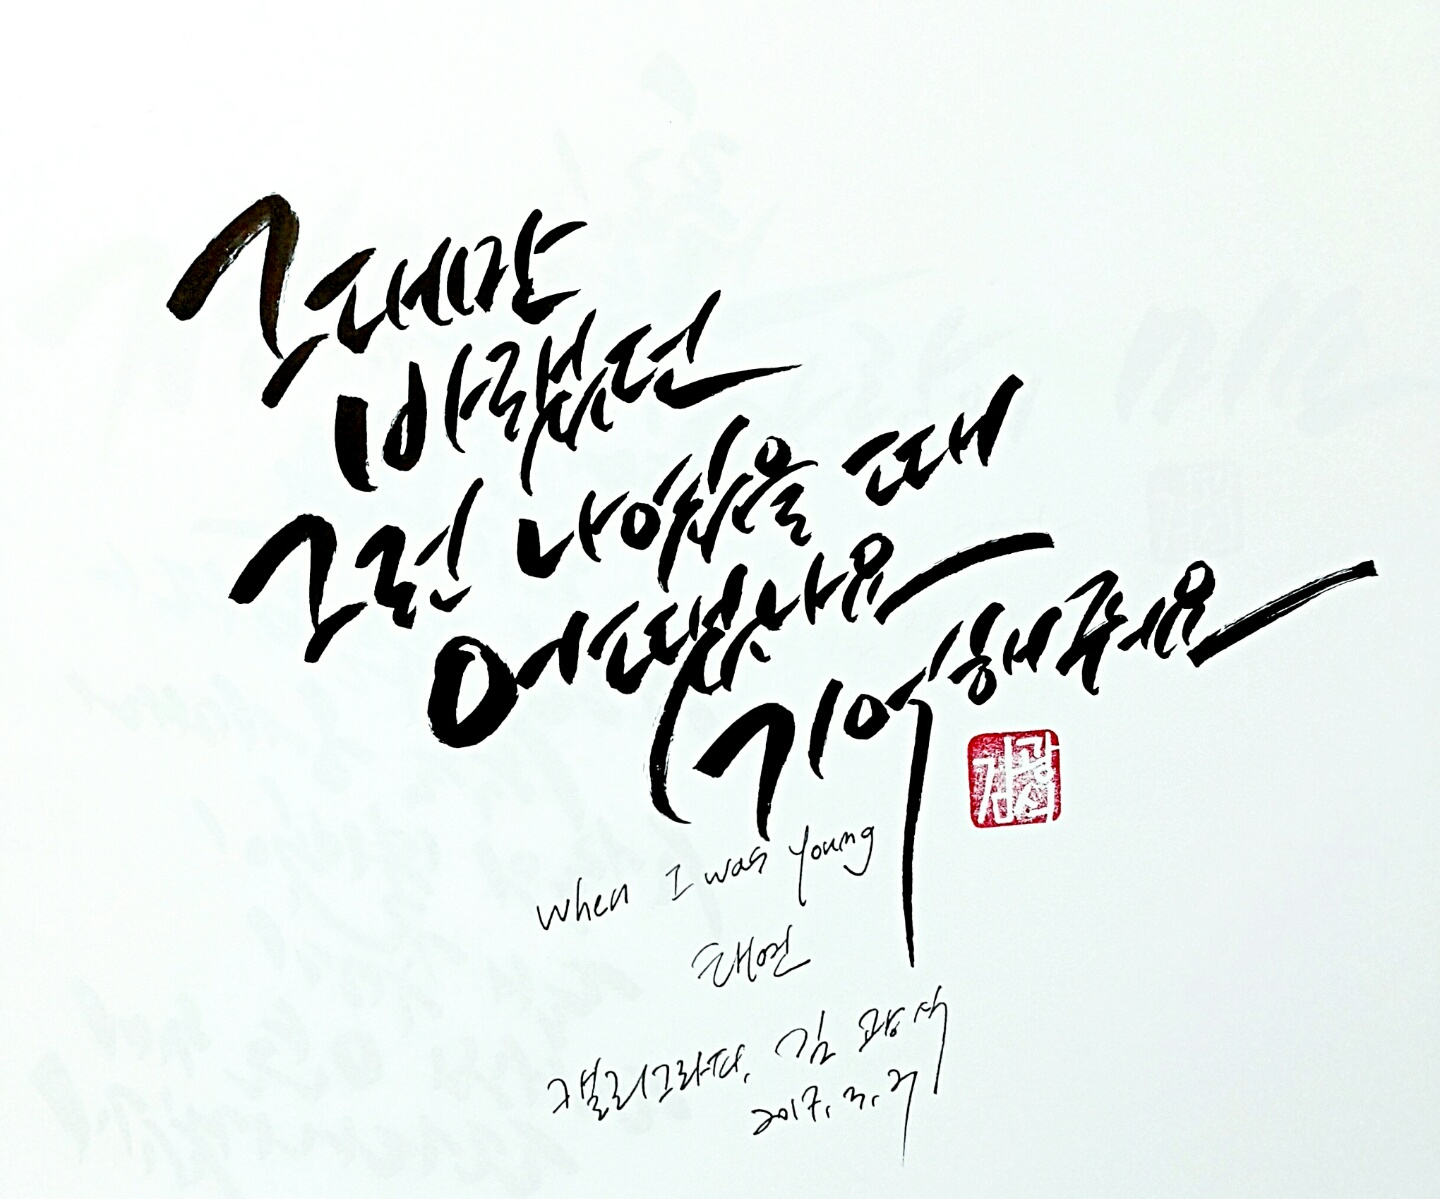 그대만
바랬던
그런 나였을 때
어땠나요
기억해주세요
when I was young
태연
캘리그라피, 김광석
2017. 3. 27